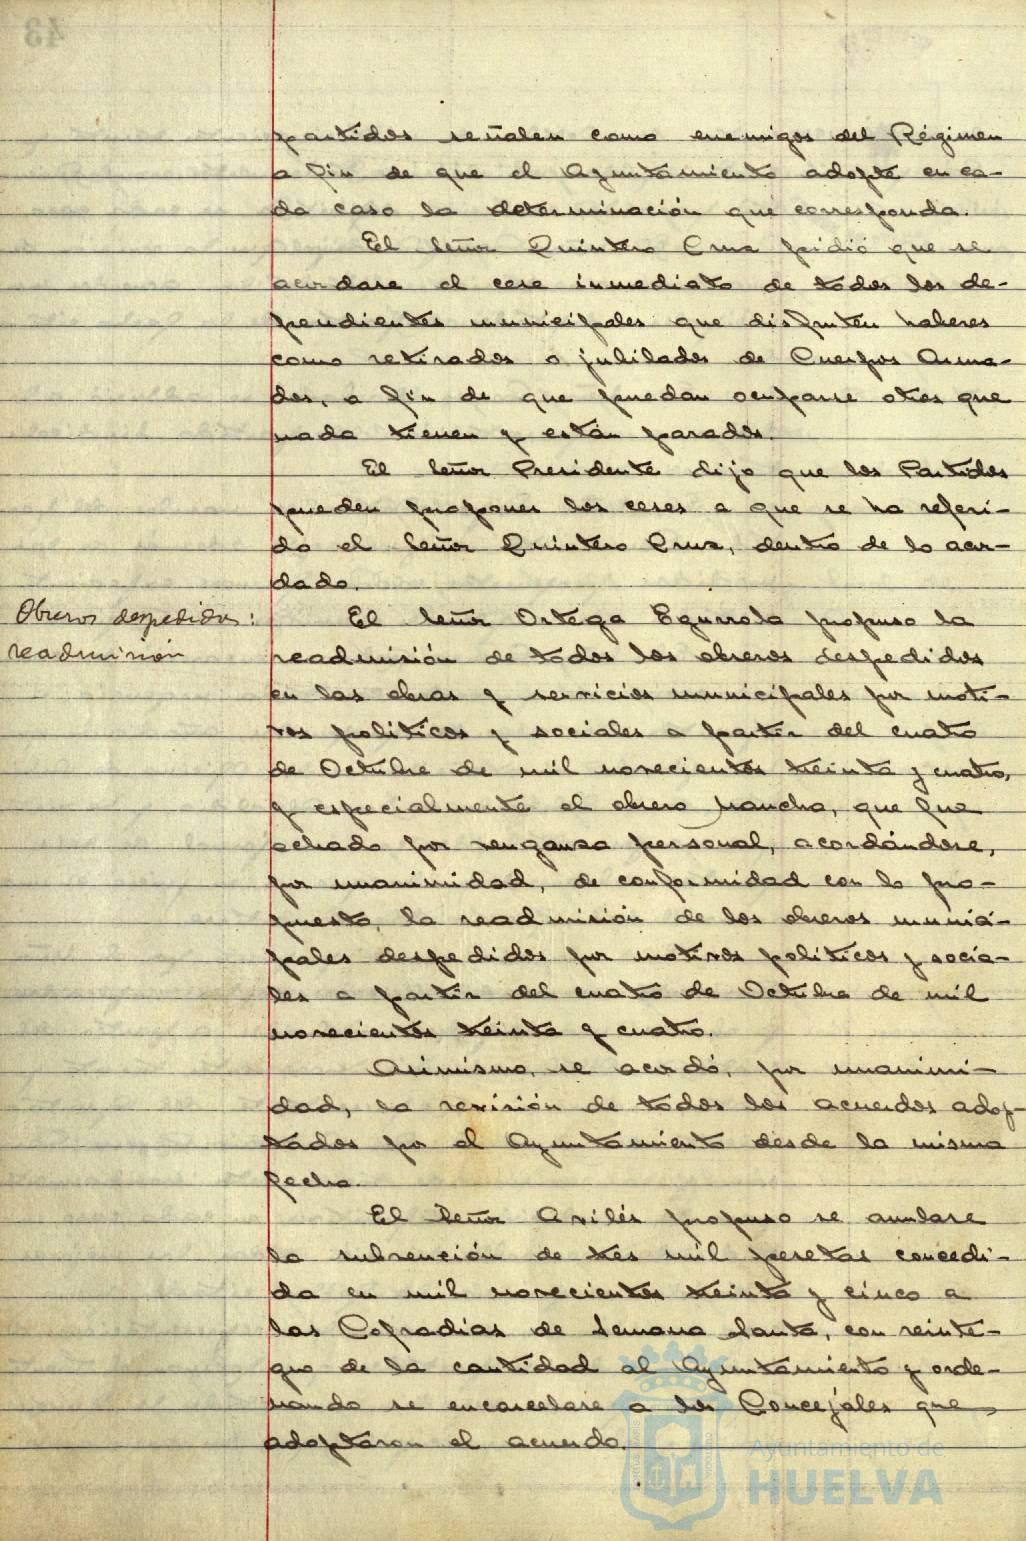 partidos señalen como enemigos del Régimen
a fin de que el Ayuntamiento adopte en ca-
da caso la determinación que corresponda.
El Señor Quintero Cruz pidió que se
acordase el cese inmediato de todos los de-
pendientes municipales que disfruten haberes
como retirados o jubilados de Cuerpos Arma-
dos, a fin de que puedan ocuparse otros que
nada tienen y están parados.
El Señor Presidente dijo que los Partidos
pueden proponer los ceses a que se ha referi-
do el Señor Quintero Cruz, dentro de lo acor-
dado.
Obreros despedidos:
readmisión
El Señor Ortega Egurrola propuso la
readmisión de todos los obreros despedidos
en las obras y servicios municipales por moti-
vos políticos y sociales a partir del cuatro
de Octubre de mil novecientos treinta y cuatro,
y especialmente el obrero Mancha, que fue
echado por venganza personal, acordándose,
por unanimidad, de conformidad con lo pro-
puesto, la readmisión de los obreros munici-
pales despedidos por motivos políticos y socia-
les a partir del cuatro de Octubre de mil
novecientos treinta y cuatro.
Asimismo, se acordó, por unanimi-
dad, la revisión de todos los acuerdos adop-
tados por el Ayuntamiento desde la misma
fecha.
El Señor Avilés propuso se anulase
la subvención de tres mil pesetas concedi-
da en mil novecientos treinta y cinco a
las Cofradías de Semana Santa, con reinte-
gro de la cantidad al Ayuntamiento y orde-
nando se encarcelase a los Concejales que
adoptaron el acuerdo.
Ayuntamiento de
HUELVA